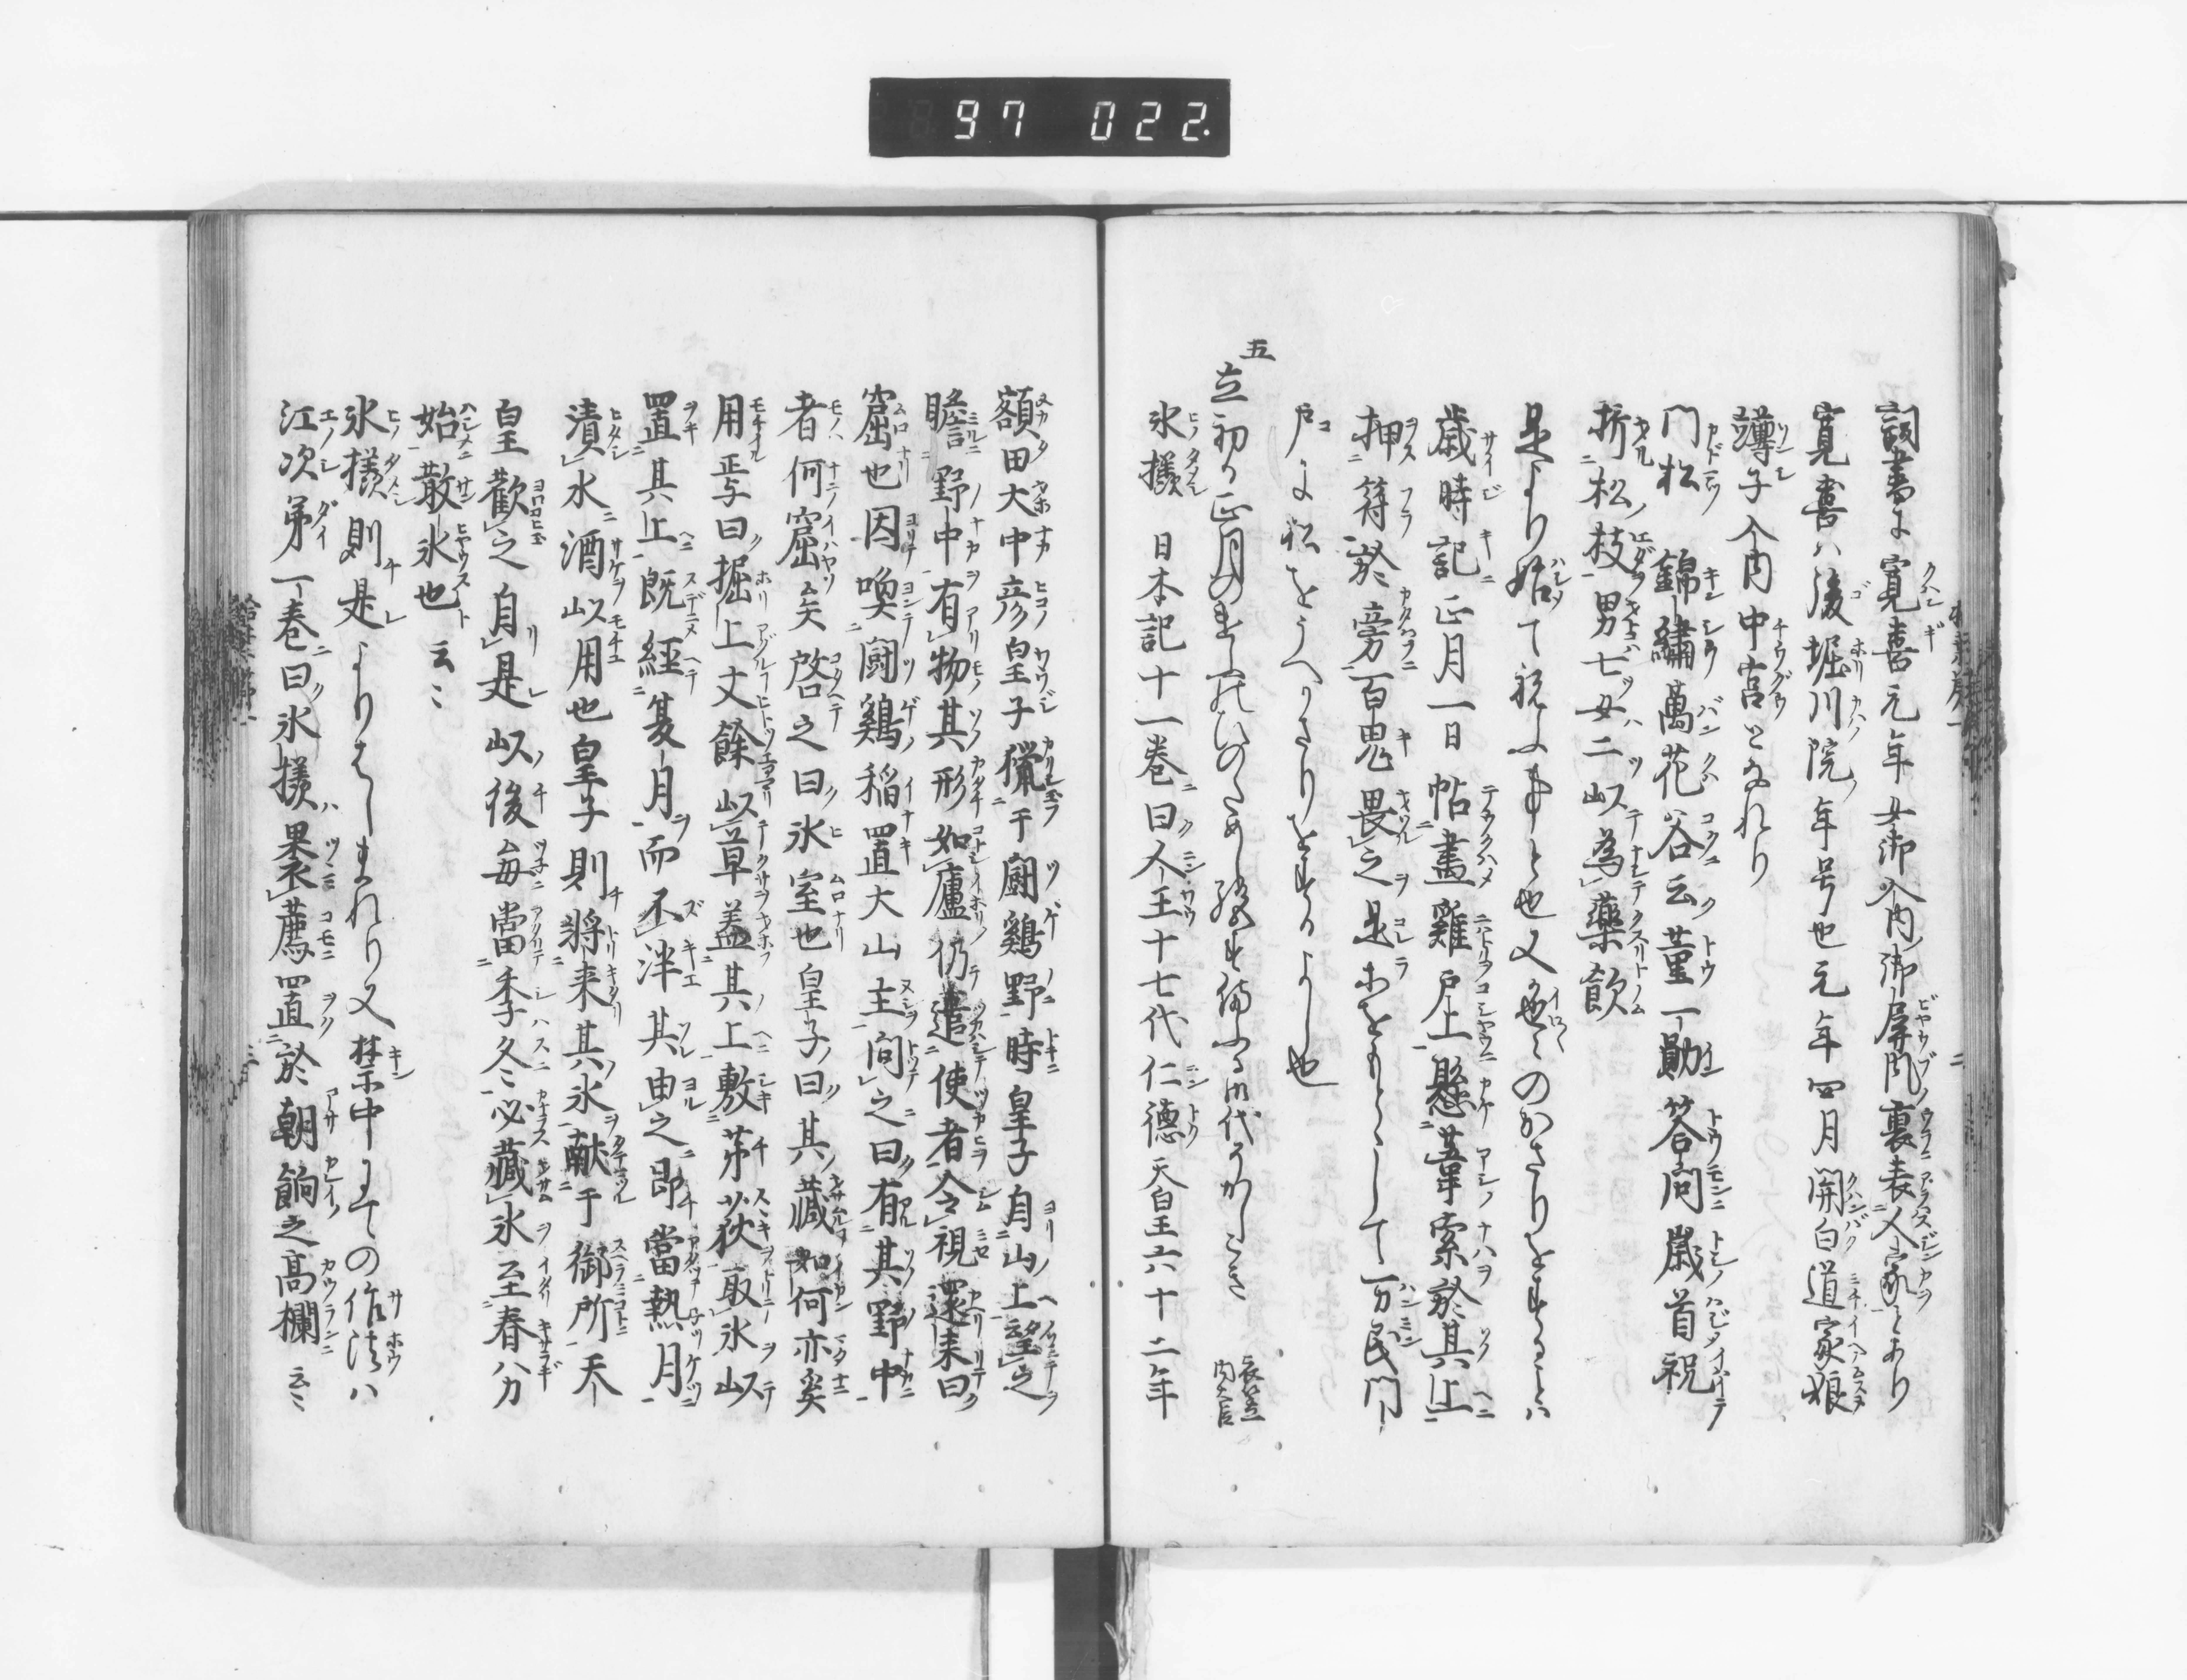 97 022.
詞書に寛喜元年女御入内御屏風裏表人家とあり
寛喜ハ後堀川院年号也元年四月関白道家娘
竴子入内中宮となれり
門松 錦繍萬花谷云董勛答問歳首祝
折松枝男七女二以為薬飲
是より始て祝ふ事と也又色〻のかさりをするとハ
歳時記正月一日帖畫雞戸上懸葦索於其上
押符於旁百鬼畏之是
戸に松をうへかさりをするよし也
五
立初る正月の
御代のかしこき
衣笠内大臣
氷様 日本記十一巻曰人王十七代仁徳天皇六十二年
額田大中彦皇子獵于闘鷄野時皇子自山上望之
瞻野中有物其形如廬仍遣使者令視還来曰
窟也因喚闘鷄稲置大山主問之曰有其野中
者何窟矣啓之曰氷室也皇子曰其藏如何亦奚
用焉曰掘土丈餘以草盖其上敷茅荻取氷以
置其上既経夏月而不泮其由之即當熱月
漬水酒以用也皇子則将来其氷献于御所天
皇歡之自是以後毎當季冬必藏氷至春分
始散氷也云〻
氷様則是よりはしまれり又禁中にての作法ハ
江次第一巻曰氷様ハ褁薦置於朝餉之高欄云〻